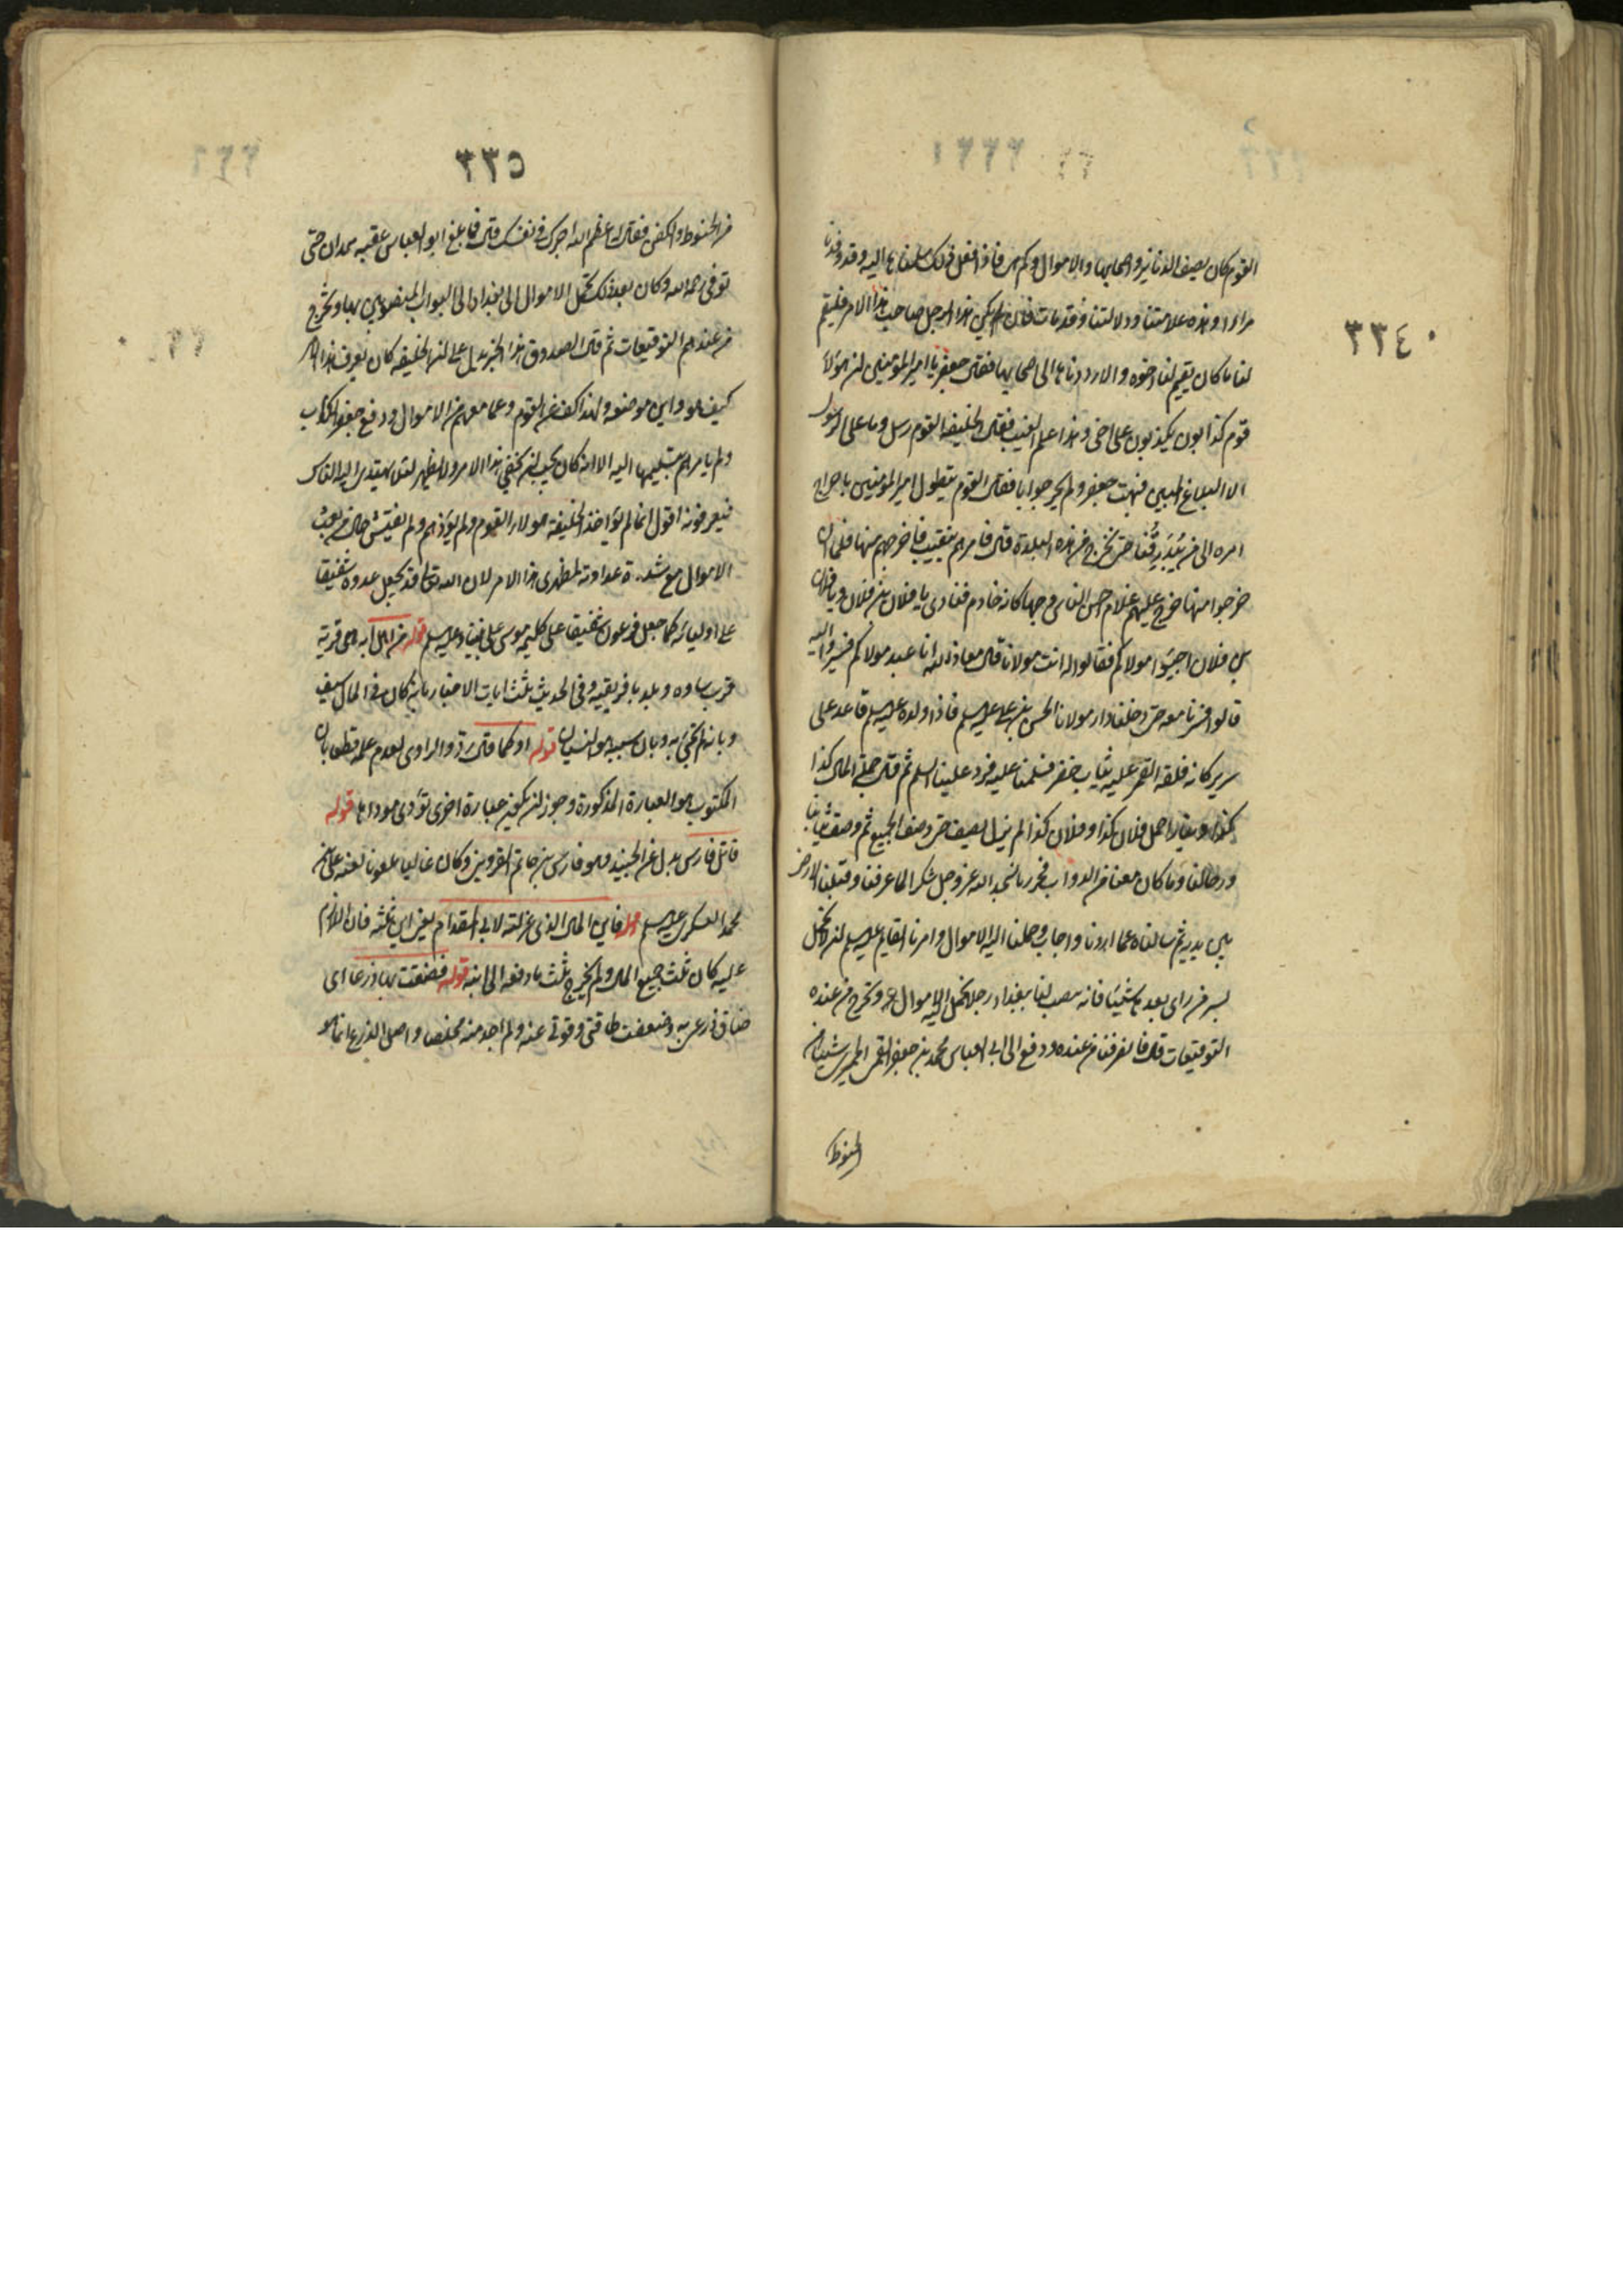 ٣٣٤
القوم كان يصف الدنانير واصحابها والاموال وكم هى فاذا فعل ذلك سلمناها اليه وقد وفدنا
مرارا وهذه علامتنا ودلالتنا وقد مات فان يكن هذا الرجل صاحب هذا الامر فليقم
لنا ما كان يقيم لنا اخوه والا رددناها الى اصحابها فقال جعفر يا امير المؤمنين ان هؤلاء
قوم كذابون يكذبون على اخى وهذا علم الغيب فقال الخليفة القوم رسل وما على الرسول
الا البلاغ المبين فبهت جعفر ولم يحر جوابا فقال القوم يتطول امير المؤمنين باخراج
امره الى من يُبَدرِقُنا حتى نخرج من هذه البلدة قال فامر لهم بنقيب فاخرجهم منها فلما ان
خرجوا منها خرج عليهم غلام احسن الناس وجها كانه خادم فنادى يا فلان بن فلان ويا فلان
بن فلان اجيبوا مولاكم فقالوا له انت مولانا قال معاذ الله انا عبد مولاكم فسيروا اليه
قالوا فسرنا معه حتى دخلنا دار مولانا الحسن بن على عليه السلم فاذا ولده عليه السلم قاعد على
سرير كانه فلقة القمر عليه ثياب خضر فسلمنا عليه فرد علينا السلم ثم قال جملة المال كذا
وكذا دينارا حمل فلان كذا وفلان كذا لم يزل يصف حتى وصف الجميع ثم وصف ثيابنا
ورحالنا وما كان معنا من الدواب فخررنا سجدا لله عز وجل شكرا لما عرفنا وقبلنا الارض
بين يديه ثم سالناه عما اردنا واجاب وحملنا اليه الاموال وامرنا القايم عليه السلم ان لا نحمل
بسر من راى بعدها شيئا فانه ينصب لنا ببغداد رجلا نحمل اليه الاموال وتخرج من عنده
التوقيعات قال فانصرفنا من عنده ودفع الى ابى العباس محمد بن جعفر القمى الحميرى شيئا من
الحنوط
٣٣٥
من الحنوط والكفن فقال له اعظم الله اجرك فى نفسك قال فما بلغ ابو العباس عقبه همدان حتى
توفى رحمه الله وكان بعد ذلك تحمل الاموال الى بغداد الى البواب المنصوبين بها وتخرج
من عندهم التوقيعات ثم قال الصدوق هذا الخبر يدل على ان الخليفة كان يعرف هذا الامر
كيف هو واين موضعه ولهذا كف عن القوم وعما معهم من الاموال ودفع جعفر الكذاب
ولم يامرهم بتسليمها اليه الا انه كان يحب ان يخفى هذا الامر ولا يظهر لئلا يهتدى اليه الناس
فيعرفونه اقول انما لم يؤاخذ الخليفة هؤلاء القوم ولم يؤذهم ولم يفتش حال من بعث
الاموال مع شدة عداوته لمظهرى هذا الامر لان الله تعالى قد يجعل عدوه شفيقا
على اوليائه كما جعل فرعون شفيقا على كليمه موسى على نبينا وعليه السلم قوله من اهل آبه هى قرية
قرب ساوه وبلد بافريقيه وفى الحديث ثلث ايات الاخبار بانه كان فى المال سيف
وبانه لم يجئ به وبان سببه هو النسيان قوله او كما قال تردد الراوى لعدم علمه قطعا بان
المكتوب هو العبارة المذكورة وجوز ان يكون عبارة اخرى تؤدى موداها قوله
قاتل فارس بدل عن الجنيد وهو فارس بن حاتم القزوينى وكان غاليا ملعونا لعنه على بن
محمد العسكرى عليه السلم قوله فاين المال الذى عزلته لابى المقدام يعنى اين ثلثه فان اللازم
عليه كان ثلث جميع المال ولم يخرج ثلث ما دفعه الى ابنه قوله فضقت بها ذرعا اى
ضاق ذرعى به وضعفت طاقتى وقوتى عنه ولم اجد منه مخلصا واصل الذرع انما هو